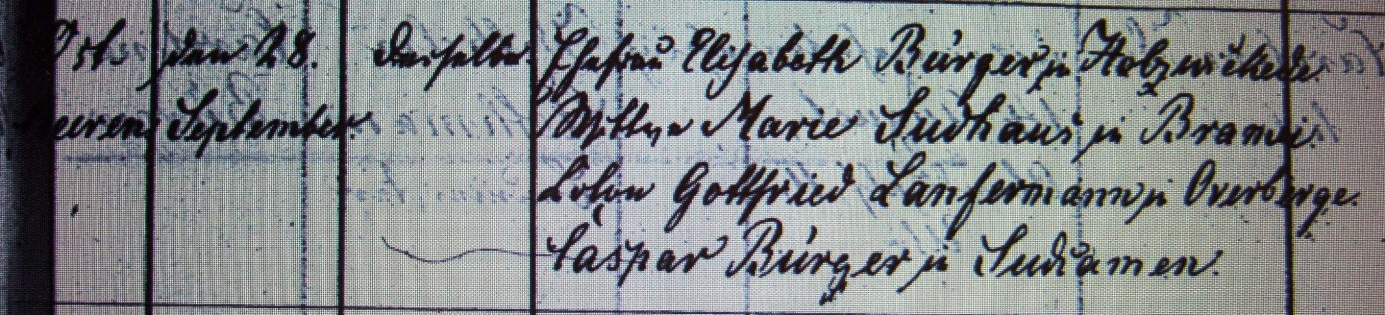 den 28. derselbe. Ehefrau Elisabeth Bürger zu Holzwickede.
Heeren September. Wittwe Marie Sudhaus zu Bramei.
Colon Gottfried Lanfermann zu Overberge.
Caspar Bürger zu Sudkamen.